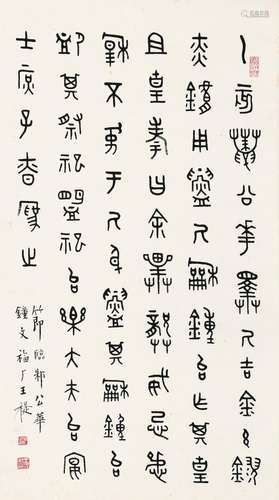 乙亥鼄公華擇厥吉金玄鏐
赤鏞用鑄厥龢鐘台乍其皇
且皇考曰余畢龏威忌
穆不于厥身鑄其龢鐘台
卹其祭祀盟祀台樂大夫台宴
士庶子昚為之
節臨邾公華
鐘文福厂王禔